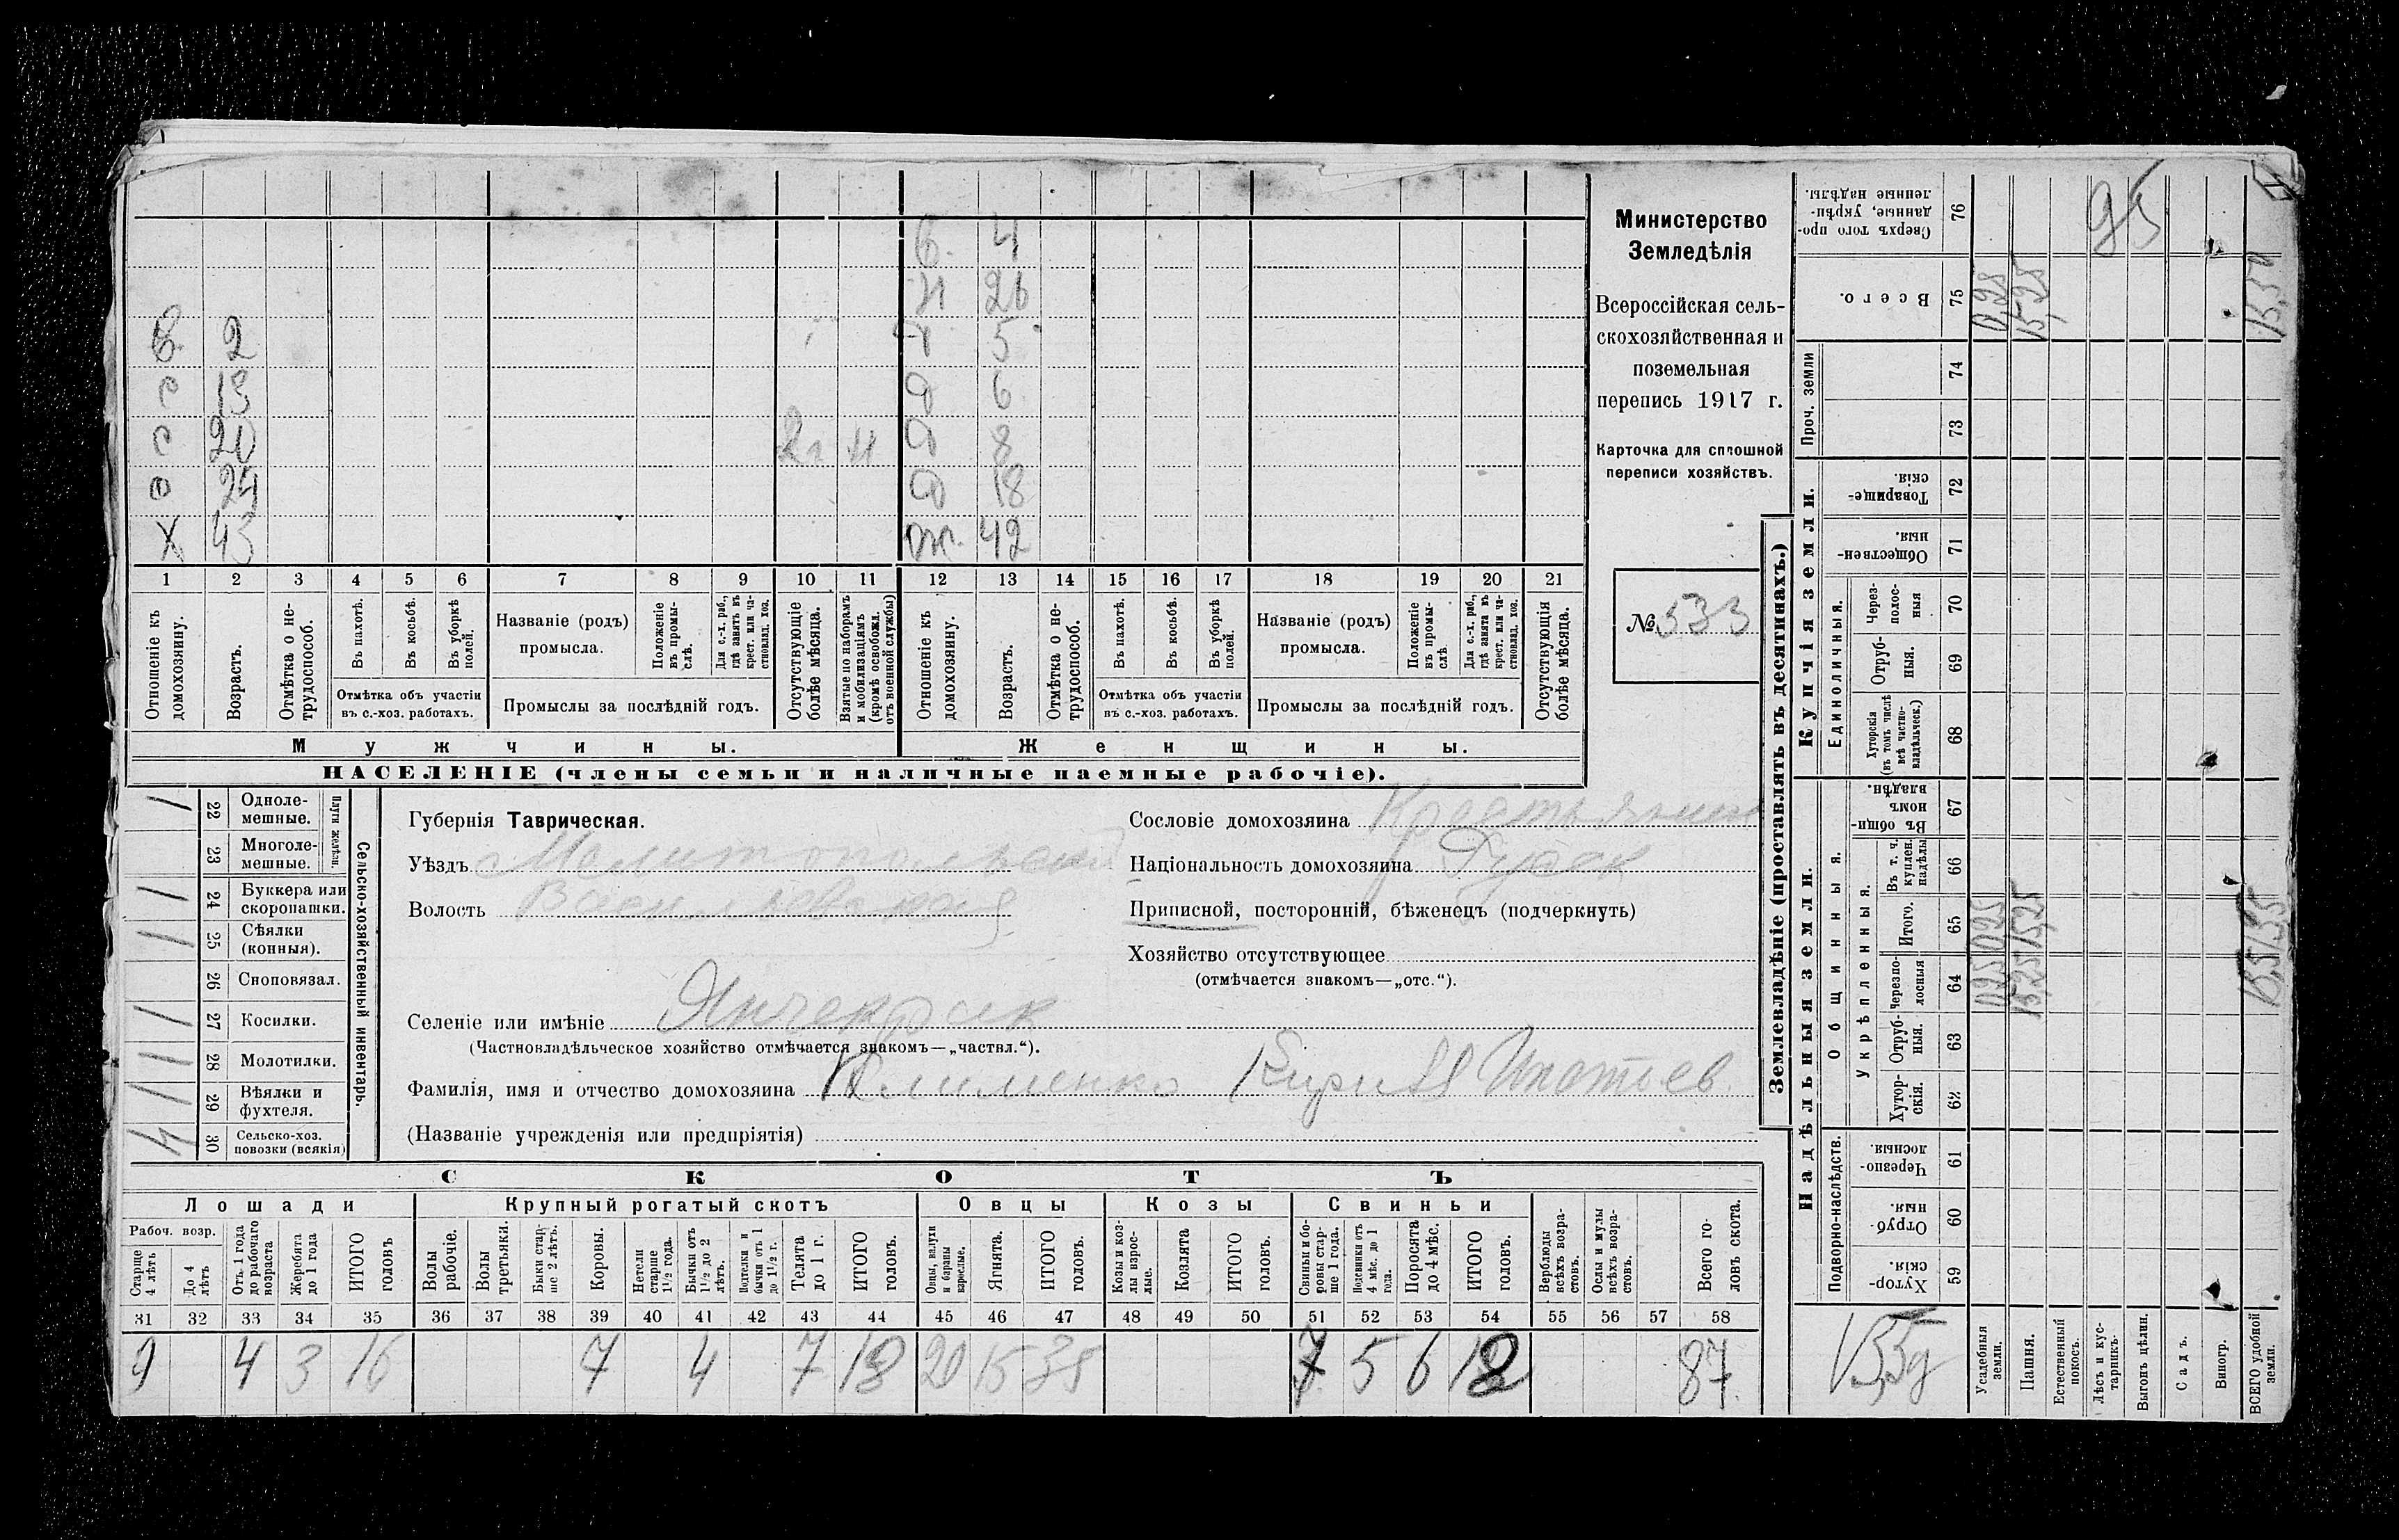 Министерство
Земледѣлія
Всероссійская сель-
скохозяйственная и
поземельная
перепись 1917 г.
Карточка для сплошной
переписи хозяйствъ.
№ 533
в. 4
н 26
в. 2 д 5
с 13 д 6
с 20 2г. н д 8
с 24 д 18
Х 43 ж. 42
1 2 3 4 5 6 7 8 9 10 11 12 13 14 15 16 17 18 19 20 21
Отношеніе къ домохозяину.
Возрастъ.
Отмѣтка о не-трудоспособ.
Въ пахотѣ.
Въ косьбѣ.
Въ уборкѣ полей.
Отмѣтка объ участіи
въ с.-хоз. работахъ.
Названіе (родъ)
промысла.
Положеніе въ промы-слѣ.
Для с.-х. раб., гдѣ занятъ въ крест. или ча-стновлад. хоз.
Промыслы за послѣдній годъ.
Отсутствующіе болѣе мѣсяца.
Взятые по наборамъ и мобилизаціямъ (кромѣ освобожд. отъ военной службы)
Отношеніе къ домохозяину.
Возрастъ.
Отмѣтка о не-трудоспособ.
Въ пахотѣ.
Въ косьбѣ.
Въ уборкѣ полей.
Отмѣтка объ участіи
въ с.-хоз. работахъ.
Названіе (родъ)
промысла.
Положеніе въ промы-слѣ.
Для с.-х. раб., гдѣ занята въ крест. или ча-стновлад. хоз.
Промыслы за послѣдній годъ.
Отсутствующія болѣе мѣсяца.
Мужчины. Женщины.
НАСЕЛЕНІЕ (члены семьи и наличные наемные рабочіе).
Сельско-хозяйственный инвентарь.
Плуги желѣзн.
1 22 Однолемешные.
23 Многолемешные.
1 24 Буккера или скоропашки.
1 25 Сѣялки (конныя).
26 Сноповязал.
1 27 Косилки.
1 28 Молотилки.
1 29 Вѣялки и фухтеля.
4 30 Сельско-хоз. повозки (всякія)
Губернія Таврическая.
Уѣздъ Мелитопольскій
Волость Васильевская
Сословіе домохозяина Крестьянин
Національность домохозяина Русск
Приписной, посторонній, бѣженецъ (подчеркнуть)
Хозяйство отсутствующее
(отмѣчается знакомъ—„отс.“).
Селеніе или имѣніе Янчекрак
(Частновладѣльческое хозяйство отмѣчается знакомъ—„частвл.“).
Фамилія, имя и отчество домохозяина Клименко Кирилл Ипатиев
(Названіе учрежденія или предпріятія)
СКОТЪ
Лошади Крупный рогатый скотъ Овцы Козы Свиньи
Рабоч. возр.
Старше 4 лѣтъ
До 4 лѣтъ
Отъ 1 года до рабочаго возраста
Жеребята до 1 года
ИТОГО ГОЛОВЪ
Волы рабочіе.
Волы третьяки.
Быки стар-ше 2 лѣтъ.
Коровы.
Нетели старше 1½ года.
Бычки отъ 1½ до 2 лѣтъ.
Подтелки и бычки отъ 1 до 1½ г.
Телята до 1 г.
ИТОГО ГОЛОВЪ.
Овцы, валухи и бараны взрослые.
Ягнята.
ИТОГО ГОЛОВЪ.
Козы и коз-лы взрос-лые.
Козлята
ИТОГО ГОЛОВЪ.
Свиньи и бо-ровы стар-ше 1 года.
Подсвинки отъ 4 мѣс. до 1 года.
Поросята до 4 мѣс.
ИТОГО ГОЛОВЪ.
Верблюды всѣхъ возра-стовъ.
Ослы и мулы всѣхъ возра-стовъ.
Всего го-ловъ скота.
31 32 33 34 35 36 37 38 39 40 41 42 43 44 45 46 47 48 49 50 51 52 53 54 55 56 57 58
9 4 3 16 7 4 7 18 20 15 35 7 5 6 18 87
Землевладѣніе (проставлять въ десятинахъ.)
Надѣльныя земли. Купчія земли. Проч. земли
Подворно-наслѣдств.
Общинныя.
Укрѣпленныя.
Единоличныя.
59 Хутор-скія.
60 Отруб-ныя.
61 Черезпо-лосныя.
62 Хутор-скія.
63 Отруб-ныя.
64 Черезпо-лосныя
65 Итого.
66 Въ т. ч. куплен. надѣлы
67 Въ общин-номъ владѣн.
68 Хуторскія (въ томъ числѣ всѣ частно-владѣльческ.)
69 Отруб-ныя.
70 Через-полос-ныя
71 Обществен-ныя.
72 Товарище-скія.
73
74
75 Всего.
76 Сверхъ того про-данные, укрѣп-ленные надѣлы.
15,5д
Усадебныя земли. 0,25 0,25 0,25
Пашня. 15,25 15,25 15,25
Естественный покосъ.
Лѣсъ и кус-тарникъ.
Выгонъ цѣлин.
Садъ.
Виногр.
ВСЕГО удобной земли. 15,5 15,5 15,50